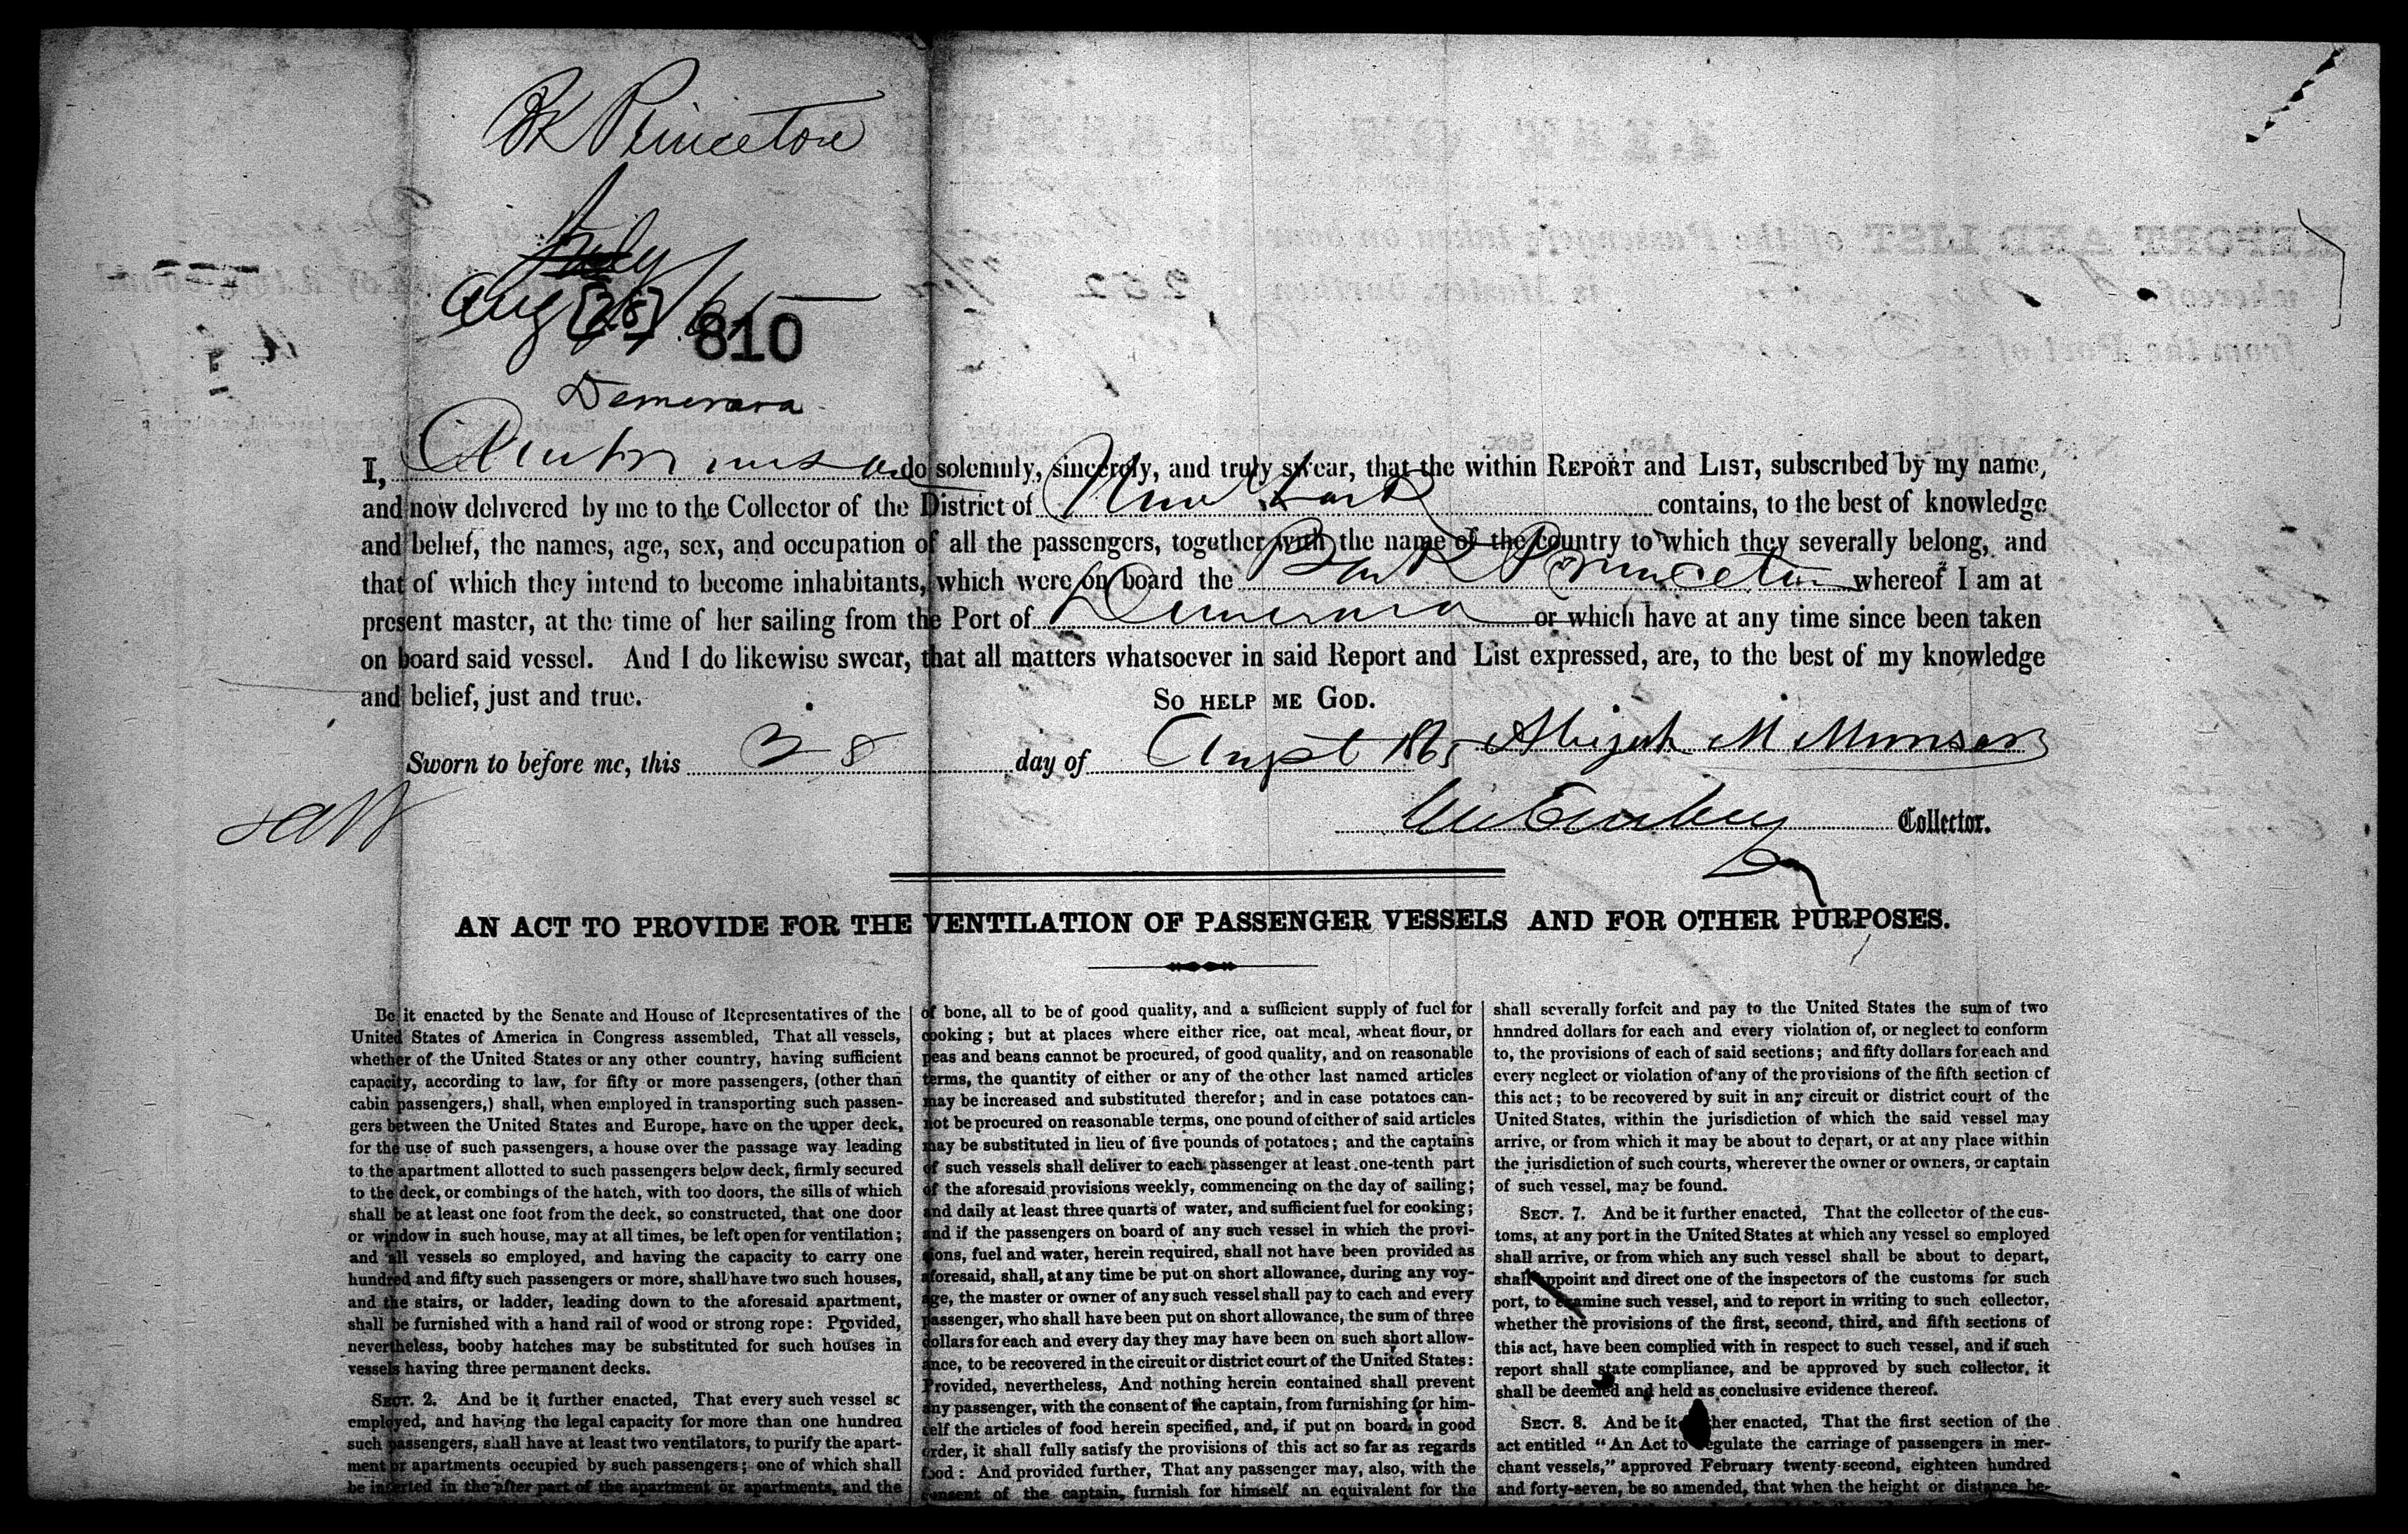 Bk Princeton
July
Aug [28] / 65
810
Demerara
I, A M Munson do solemnly, sincerely, and truly swear, that the within REPORT and LIST, subscribed by my name,
and now delivered by me to the Collector of the District of New York contains, to the best of knowledge
and belief, the names, age, sex, and occupation of all the passengers, together with the name of the Country to which they severally belong, and
that of which they intend to become inhabitants, which were on board the Bark Princeton whereof I am at
present master, at the time of her sailing from the Port of Demerara or which have at any time since been taken
on board said vessel. And I do likewise swear, that all matters whatsoever in said Report and List expressed, are, to the best of my knowledge
and belief, just and true. SO HELP ME GOD.
Sworn to before me, this 28 day of Augst 1865 Abijah M Munson
Collector.
AN ACT TO PROVIDE FOR THE VENTILATION OF PASSENGER VESSELS AND FOR OTHER PURPOSES.
Be it enacted by the Senate and House of Representatives of the
United States of America in Congress assembled, That all vessels,
whether of the United States or any other country, having sufficient
capacity, according to law, for fifty or more passengers, (other than
cabin passengers,) shall, when employed in transporting such passen-
gers between the United States and Europe, have on the upper deck,
for the use of such passengers, a house over the passage way leading
to the apartment allotted to such passengers below deck, firmly secured
to the deck, or combings of the hatch, with too doors, the sills of which
shall be at least one foot from the deck, so constructed, that one door
or window in such house, may at all times, be left open for ventilation;
and all vessels so employed, and having the capacity to carry one
hundred and fifty such passengers or more, shall have two such houses,
and the stairs, or ladder, leading down to the aforesaid apartment,
shall be furnished with a hand rail of wood or strong rope: Provided,
nevertheless, booby hatches may be substituted for such houses in
vessels having three permanent decks.
SECT. 2. And be it further enacted, That every such vessel so
employed, and having the legal capacity for more than one hundred
such passengers, shall have at least two ventilators, to purify the apart-
ment or apartments occupied by such passengers; one of which shall
be inserted in the after part of the apartment or apartments, and the
of bone, all to be of good quality, and a sufficient supply of fuel for
cooking; but at places where either rice, oat meal, wheat flour, or
peas and beans cannot be procured, of good quality, and on reasonable
terms, the quantity of either or any of the other last named articles
may be increased and substituted therefor; and in case potatoes can-
not be procured on reasonable terms, one pound of either of said articles
may be substituted in lieu of five pounds of potatoes; and the captains
of such vessels shall deliver to each passenger at least one-tenth part
of the aforesaid provisions weekly, commencing on the day of sailing;
and daily at least three quarts of water, and sufficient fuel for cooking;
and if the passengers on board of any such vessel in which the provi-
sions, fuel and water, herein required, shall not have been provided as
aforesaid, shall, at any time be put on short allowance, during any voy-
age, the master or owner of any such vessel shall pay to each and every
passenger, who shall have been put on short allowance, the sum of three
dollars for each and every day they may have been on such short allow-
ance, to be recovered in the circuit or district court of the United States:
Provided, nevertheless, And nothing herein contained shall prevent
any passenger, with the consent of the captain, from furnishing for him-
self the articles of food herein specified, and, if put on board in good
order, it shall fully satisfy the provisions of this act so far as regards
food: And provided further, That any passenger may, also, with the
consent of the captain, furnish for himself an equivalent for the
shall severally forfeit and pay to the United States the sum of two
hnndred dollars for each and every violation of, or neglect to conform
to, the provisions of each of said sections; and fifty dollars for each and
every neglect or violation of any of the provisions of the fifth section of
this act; to be recovered by suit in any circuit or district court of the
United States, within the jurisdiction of which the said vessel may
arrive, or from which it may be about to depart, or at any place within
the jurisdiction of such courts, wherever the owner or owners, or captain
of such vessel, may be found.
SECT. 7. And be it further enacted, That the collector of the cus-
toms, at any port in the United States at which any vessel so employed
shall arrive, or from which any such vessel shall be about to depart,
shall appoint and direct one of the inspectors of the customs for such
port, to examine such vessel, and to report in writing to such collector,
whether the provisions of the first, second, third, and fifth sections of
this act, have been complied with in respect to such vessel, and if such
report shall state compliance, and be approved by such collector, it
shall be deemed and held as conclusive evidence thereof.
SECT. 8. And be it further enacted, That the first section of the
act entitled “An Act to regulate the carriage of passengers in mer-
chant vessels,” approved February twenty-second, eighteen hundred
and forty-seven, be so amended, that when the height or distance be-